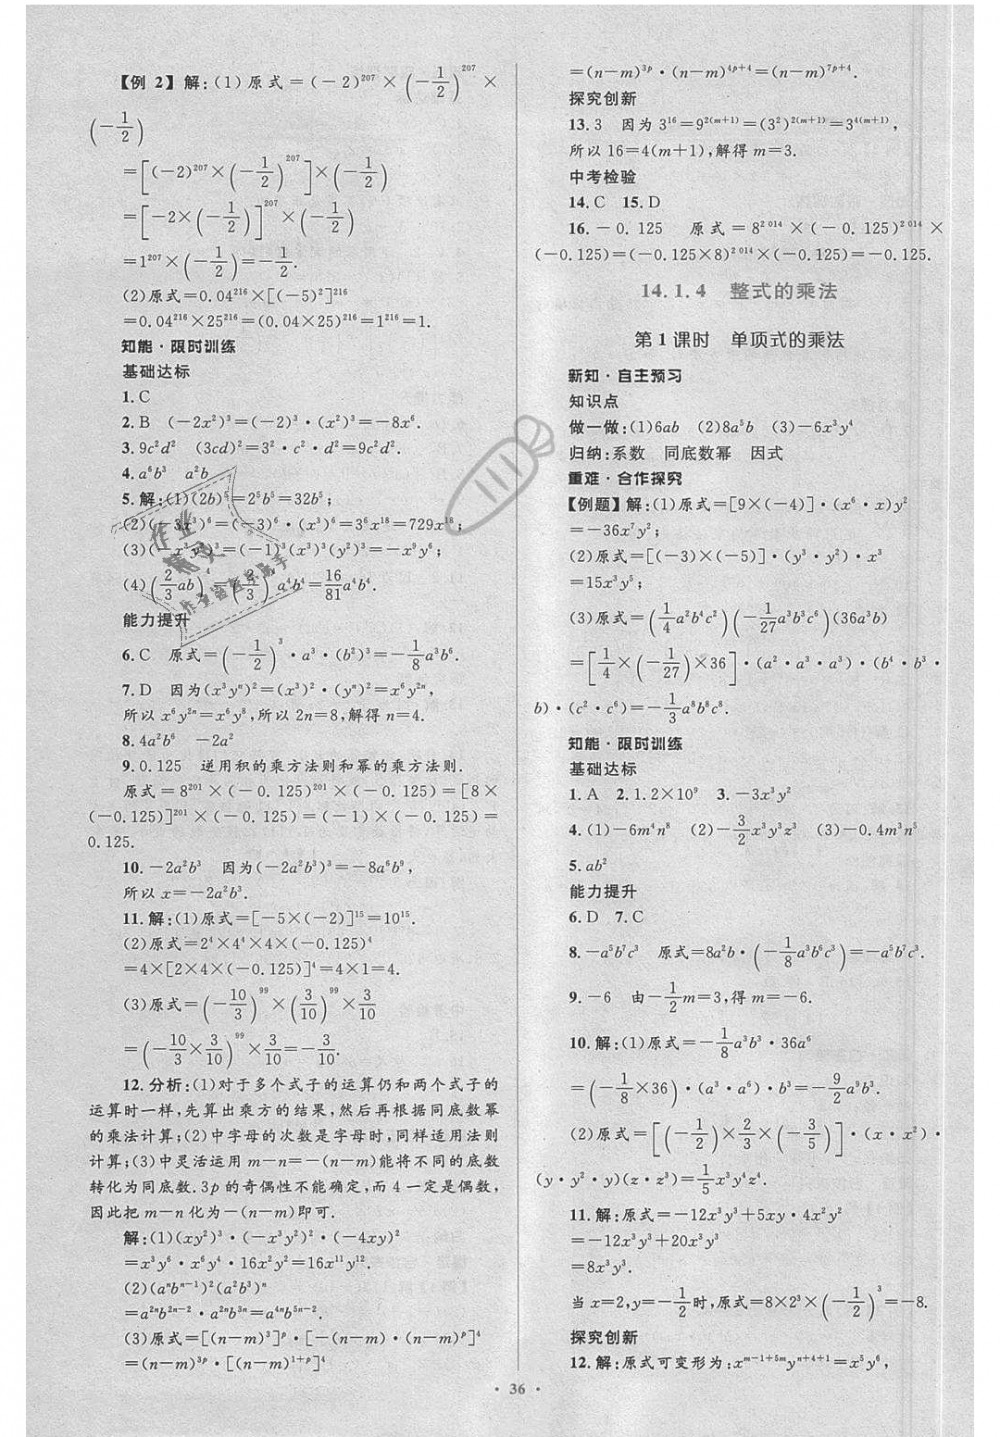 【例 2】解:(1)原式=(-2)²⁰⁷×(-1/2)²⁰⁷×
(-1/2)
=[(-2)²⁰⁷×(-1/2)²⁰⁷]×(-1/2)
=[-2×(-1/2)]²⁰⁷×(-1/2)
=1²⁰⁷×(-1/2)=-1/2.
(2)原式=0.04²¹⁶×[(-5)²]²¹⁶
=0.04²¹⁶×25²¹⁶=(0.04×25)²¹⁶=1²¹⁶=1.
知能·限时训练
基础达标
1.C
2.B (-2x²)³=(-2)³·(x²)³=-8x⁶.
3.9c²d² (3cd)²=3²·c²·d²=9c²d²
4.a⁶b³ a²b
5.解:(1)(2b)⁵=2⁵b⁵=32b⁵;
(2)(-3x³)⁶=(-3)⁶·(x³)⁶=3⁶x¹⁸=729x¹⁸;
(3)(-x³y²)³=(-1)³(x³)³(y²)³=-x⁹y⁶;
(4)(2/3 ab)⁴=(2/3)⁴a⁴b⁴=16/81 a⁴b⁴.
能力提升
6.C 原式=(-1/2)³·a³·(b²)³=-1/8 a³b⁶.
7.D 因为(x³yⁿ)²=(x³)²·(yⁿ)²=x⁶y²ⁿ,
所以 x⁶y²ⁿ=x⁶y⁸,所以 2n=8,解得 n=4.
8.4a²b⁶ -2a²
9.0.125 逆用积的乘方法则和幂的乘方法则.
原式=8²⁰¹×(-0.125)²⁰¹×(-0.125)=[8×
(-0.125)]²⁰¹×(-0.125)=(-1)×(-0.125)=
0.125.
10.-2a²b³ 因为(-2a²b³)³=-8a⁶b⁹,
所以 x=-2a²b³.
11.解:(1)原式=[-5×(-2)]¹⁵=10¹⁵.
(2)原式=2⁴×4⁴×4×(-0.125)⁴
=4×[2×4×(-0.125)]⁴=4×1=4.
(3)原式=(-10/3)⁹⁹×(3/10)⁹⁹×3/10
=(-10/3×3/10)⁹⁹×3/10=-3/10.
12.分析:(1)对于多个式子的运算仍和两个式子的
运算时一样,先算出乘方的结果,然后再根据同底数幂
的乘法计算;(2)中字母的次数是字母时,同样适用法则
计算;(3)中灵活运用 m-n=-(n-m)能将不同的底数
转化为同底数.3p 的奇偶性不能确定,而 4 一定是偶数,
因此把 m-n 化为-(n-m)即可.
解:(1)(xy²)³·(-x³y²)²·(-4xy)²
=x³y⁶·x⁶y⁴·16x²y²=16x¹¹y¹².
(2)(aⁿbⁿ⁻¹)²(a²b³)ⁿ
=a²ⁿb²ⁿ⁻²·a²ⁿb³ⁿ=a⁴ⁿb⁵ⁿ⁻².
(3)原式=[(n-m)³]ᵖ·[-(n-m)·(n-m)ᵖ]⁴
=(n-m)³ᵖ·[-(n-m)¹⁺ᵖ]⁴
=(n-m)³ᵖ·(n-m)⁴ᵖ⁺⁴=(n-m)⁷ᵖ⁺⁴.
探究创新
13.3 因为 3¹⁶=9²⁽ᵐ⁺¹⁾=(3²)²⁽ᵐ⁺¹⁾=3⁴⁽ᵐ⁺¹⁾,
所以 16=4(m+1),解得 m=3.
中考检验
14.C 15.D
16.-0.125 原式=8²⁰¹⁴×(-0.125)²⁰¹⁴×
(-0.125)=(-0.125×8)²⁰¹⁴×(-0.125)=-0.125.
14.1.4 整式的乘法
第 1 课时 单项式的乘法
新知·自主预习
知识点
做一做:(1)6ab (2)8a⁵b (3)-6x³y⁴
归纳:系数 同底数幂 因式
重难·合作探究
【例题】解:(1)原式=[9×(-4)]·(x⁶·x)y²
=-36x⁷y²;
(2)原式=[(-3)×(-5)]·(y³·y²)·x³
=15x³y⁵;
(3)原式=(1/4 a²b⁴c²)(-1/27 a³b³c⁶)(36a³b)
=[1/4×(-1/27)×36]·(a²·a³·a³)·(b⁴·b³·
b)·(c²·c⁶)=-1/3 a⁸b⁸c⁸.
知能·限时训练
基础达标
1.A 2.1.2×10⁹ 3.-3x³y²
4.(1)-6m⁴n⁸ (2)-3/2 x³y³z³ (3)-0.4m³n⁵
5.ab²
能力提升
6.D 7.C
8.-a⁵b⁷c³ 原式=8a²b·(-1/8 a³b⁶c³)=-a⁵b⁷c³.
9.-6 由-1/2 m=3,得 m=-6.
10.解:(1)原式=-1/8 a³b³·36a⁶
=(-1/8×36)·(a³·a⁶)·b³=-9/2 a⁹b³.
(2)原式=[(-1/2)×2/3×(-3/5)]·(x·x²)·
(y·y²·y)(z·z³)=1/5 x³y⁴z⁴.
11.解:原式=-12x³y³+5xy·4x²y²
=-12x³y³+20x³y³
=8x³y³.
当 x=2,y=-1/2时,原式=8×2³×(-1/2)³=-8.
探究创新
12.解:原式可变形为:xᵐ⁻¹⁺⁵ᵐyⁿ⁺⁴⁺¹=x⁵y⁶,
·36·
作业
精灵